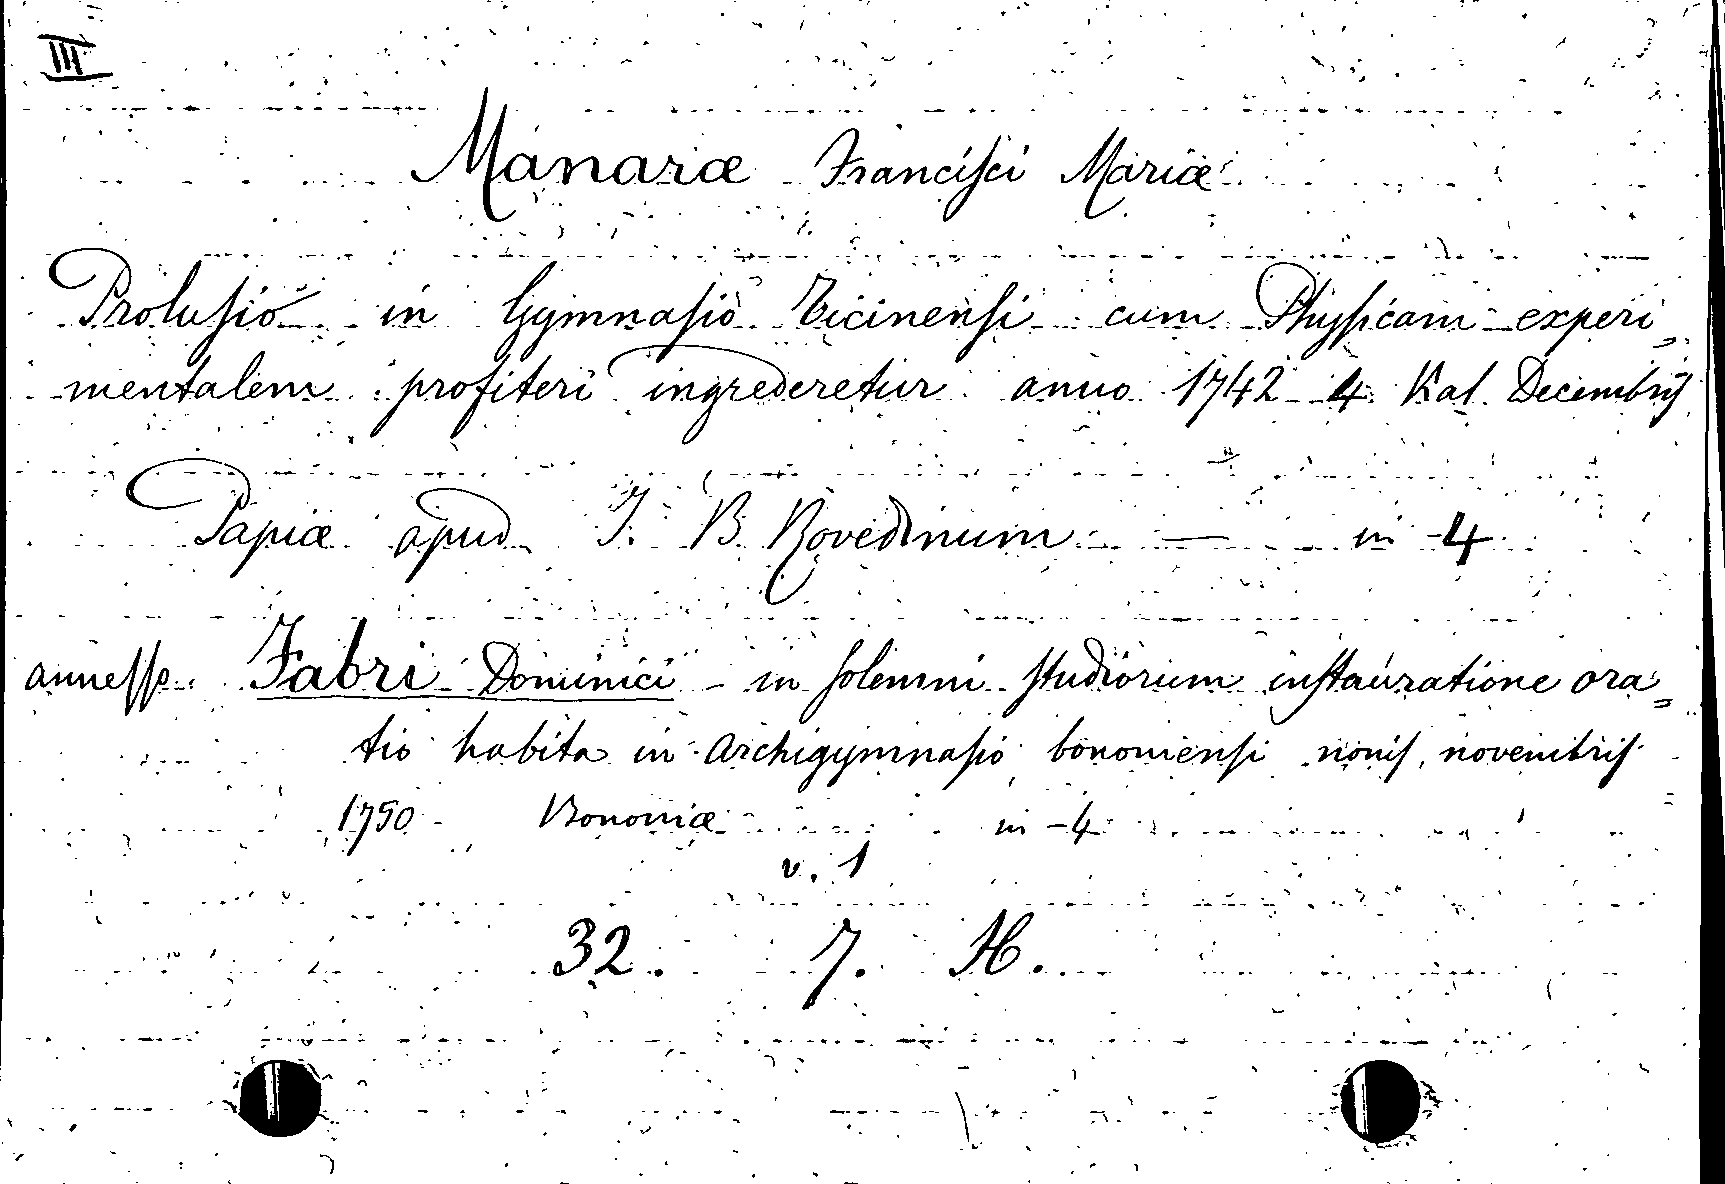 III
Manaræ Francisci Mariæ
Prolusio in Gymnasio Ticinensi cum Physicam experi„
mentalem profiteri ingrederetur anno 1742 4 Kal. Decembris
Papiæ apud J. B. Rovedinum — in 4
annesso. Fabri Dominici - in solemni studiorum instauratione ora„
tio habita in Archigymnasio bononiensi nonis novembris
1750 - Bononiæ in - 4
v. 1
32. 7. H.